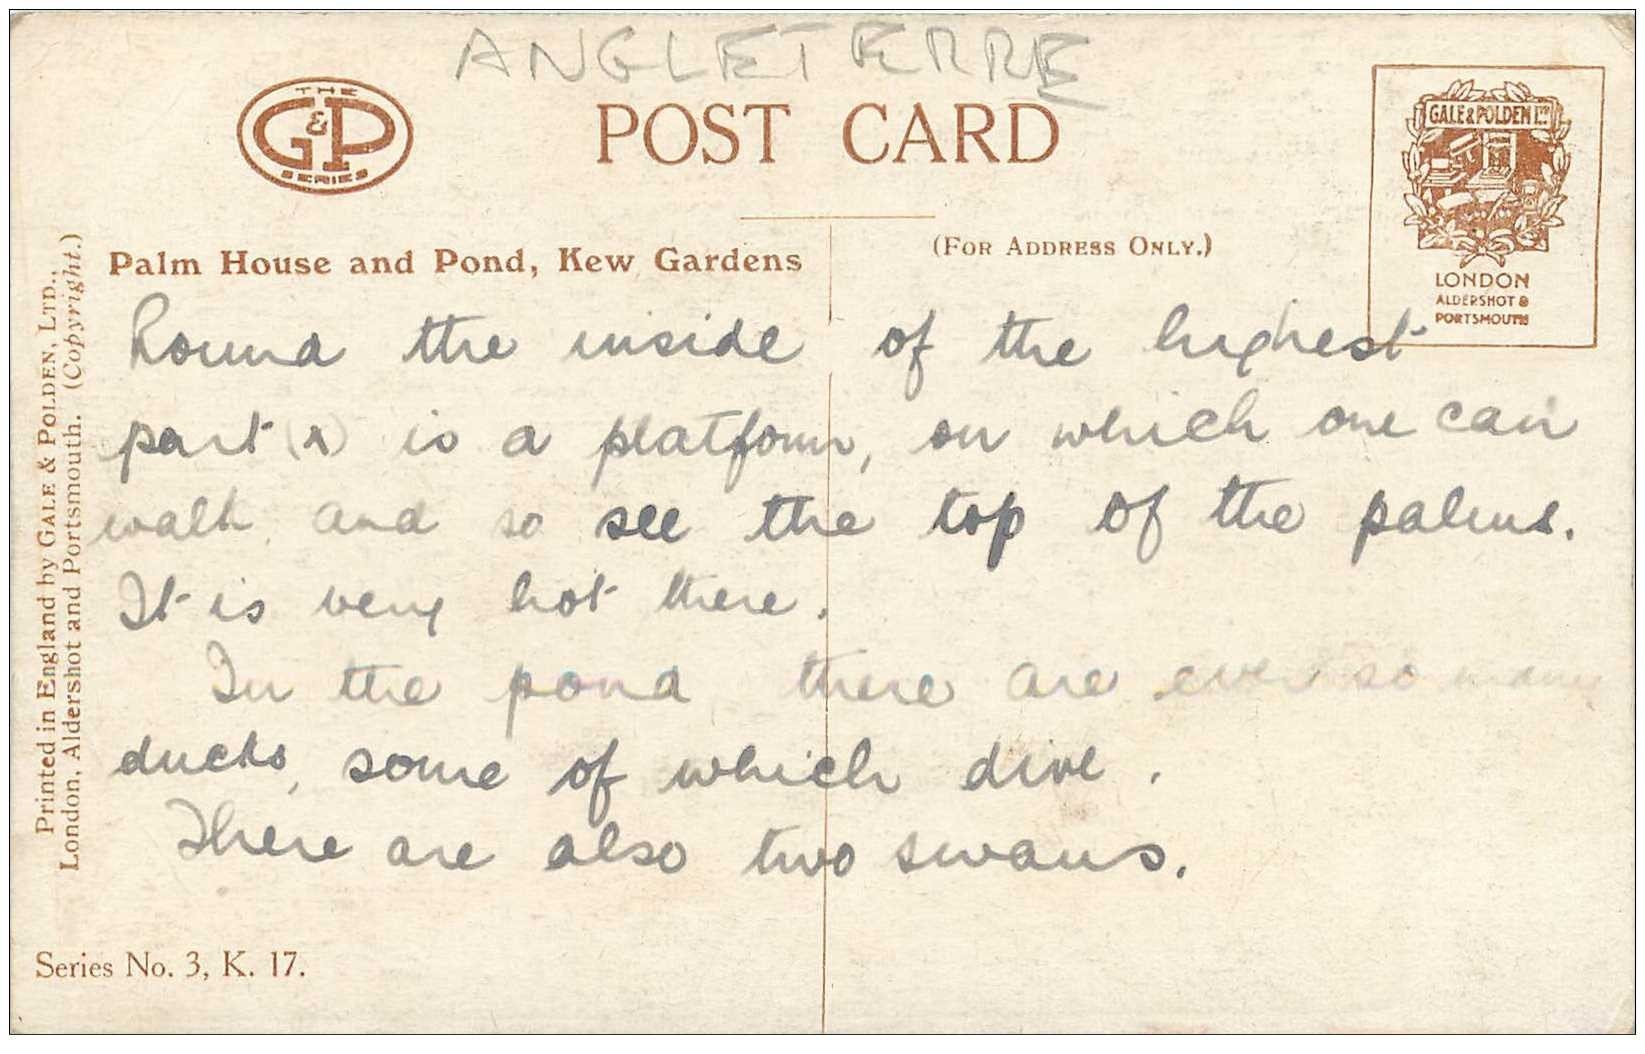 ANGLETERRE
THE
G&P
SERIES
POST CARD
GALE & POLDEN LTD
LONDON
ALDERSHOT &
PORTSMOUTH
Palm House and Pond, Kew Gardens
(For Address Only.)
Round the inside of the highest
part (x) is a platform, on which one can
walk and so see the top of the palms.
It is very hot there.
In the pond there are ever so many
ducks, some of which dive.
There are also two swans.
Printed in England by GALE & POLDEN, LTD.,
London, Aldershot and Portsmouth. (Copyright.)
Series No. 3, K. 17.